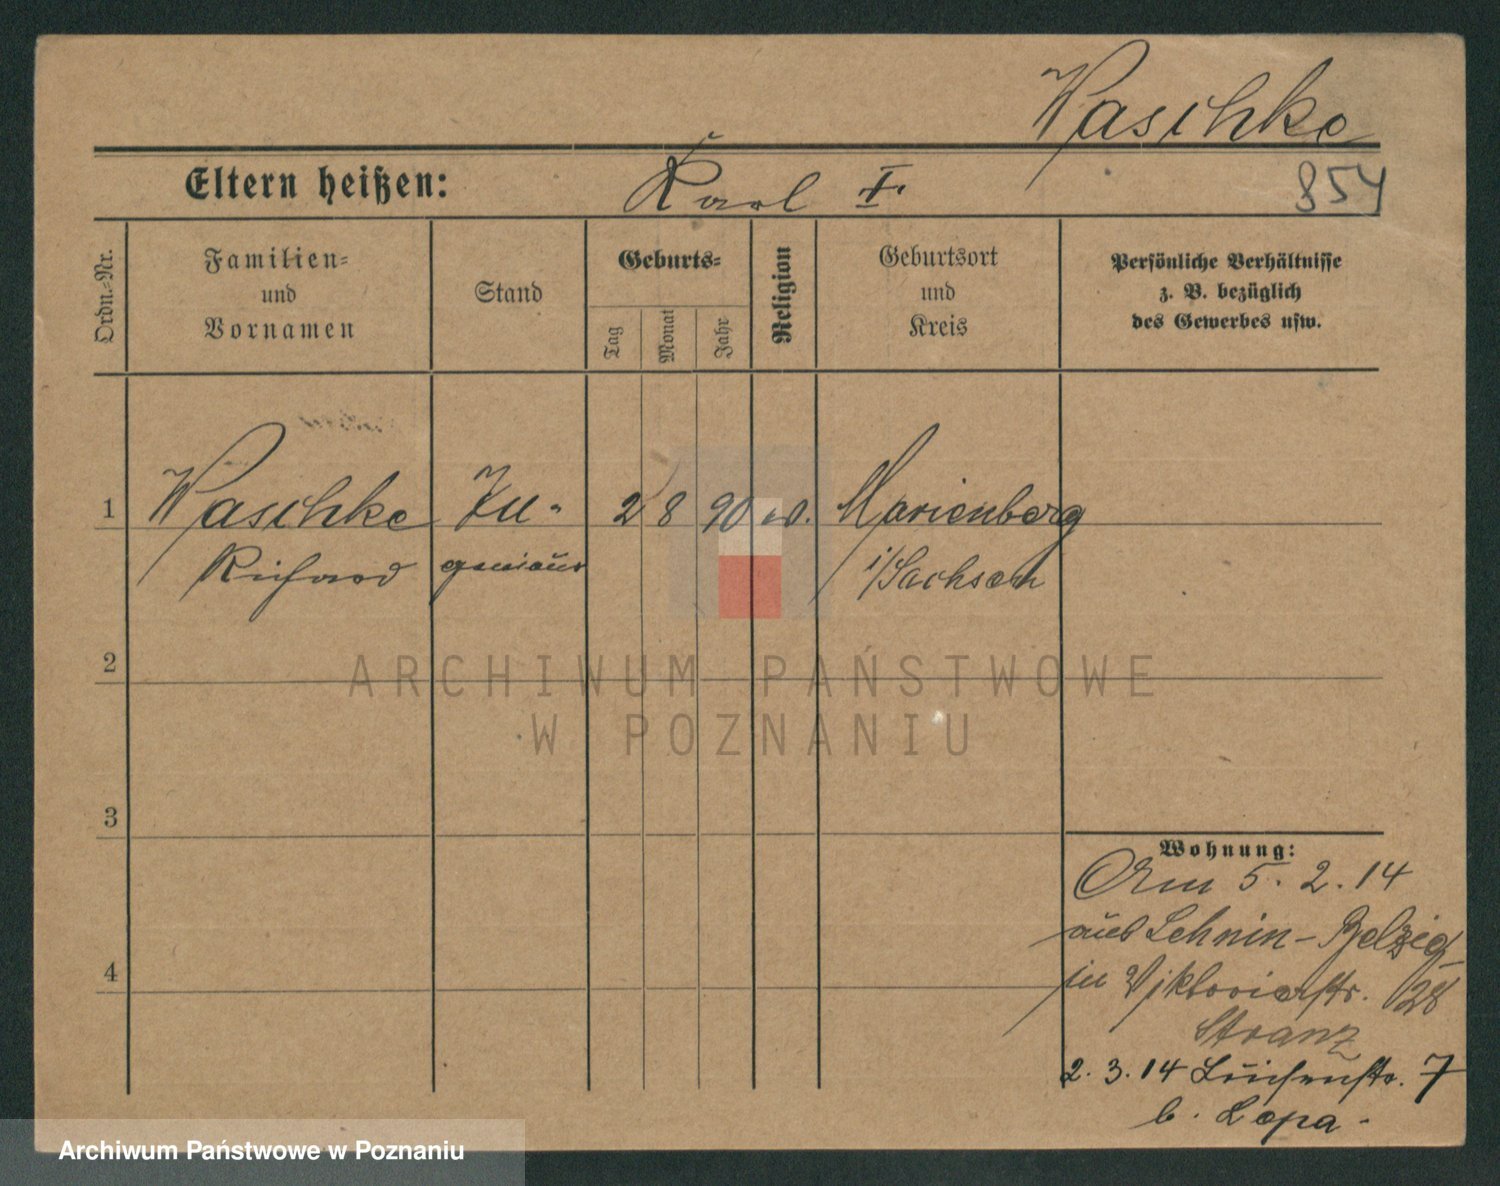 Waschke
Eltern heißen: Karl I.
854
Ordn.-Nr.
Familien-
und
Vornamen
Stand
Geburts-
Tag
Monat
Jahr
Religion
Geburtsort
und
Kreis
Persönliche Verhältnisse
z. B. bezüglich
des Gewerbes usw.
1 Waschke In- 2 8 90 ev. Marienberg
Richard genieur i/Sachsen
2
3
4
Wohnung:
Am 5. 2. 14
aus Lehnin-Belzig
in Viktoriastr. 28
Stranz
2. 3. 14 Luisenstr. 7
b. Lopa.
ARCHIWUM PAŃSTWOWE
W POZNANIU
Archiwum Państwowe w Poznaniu